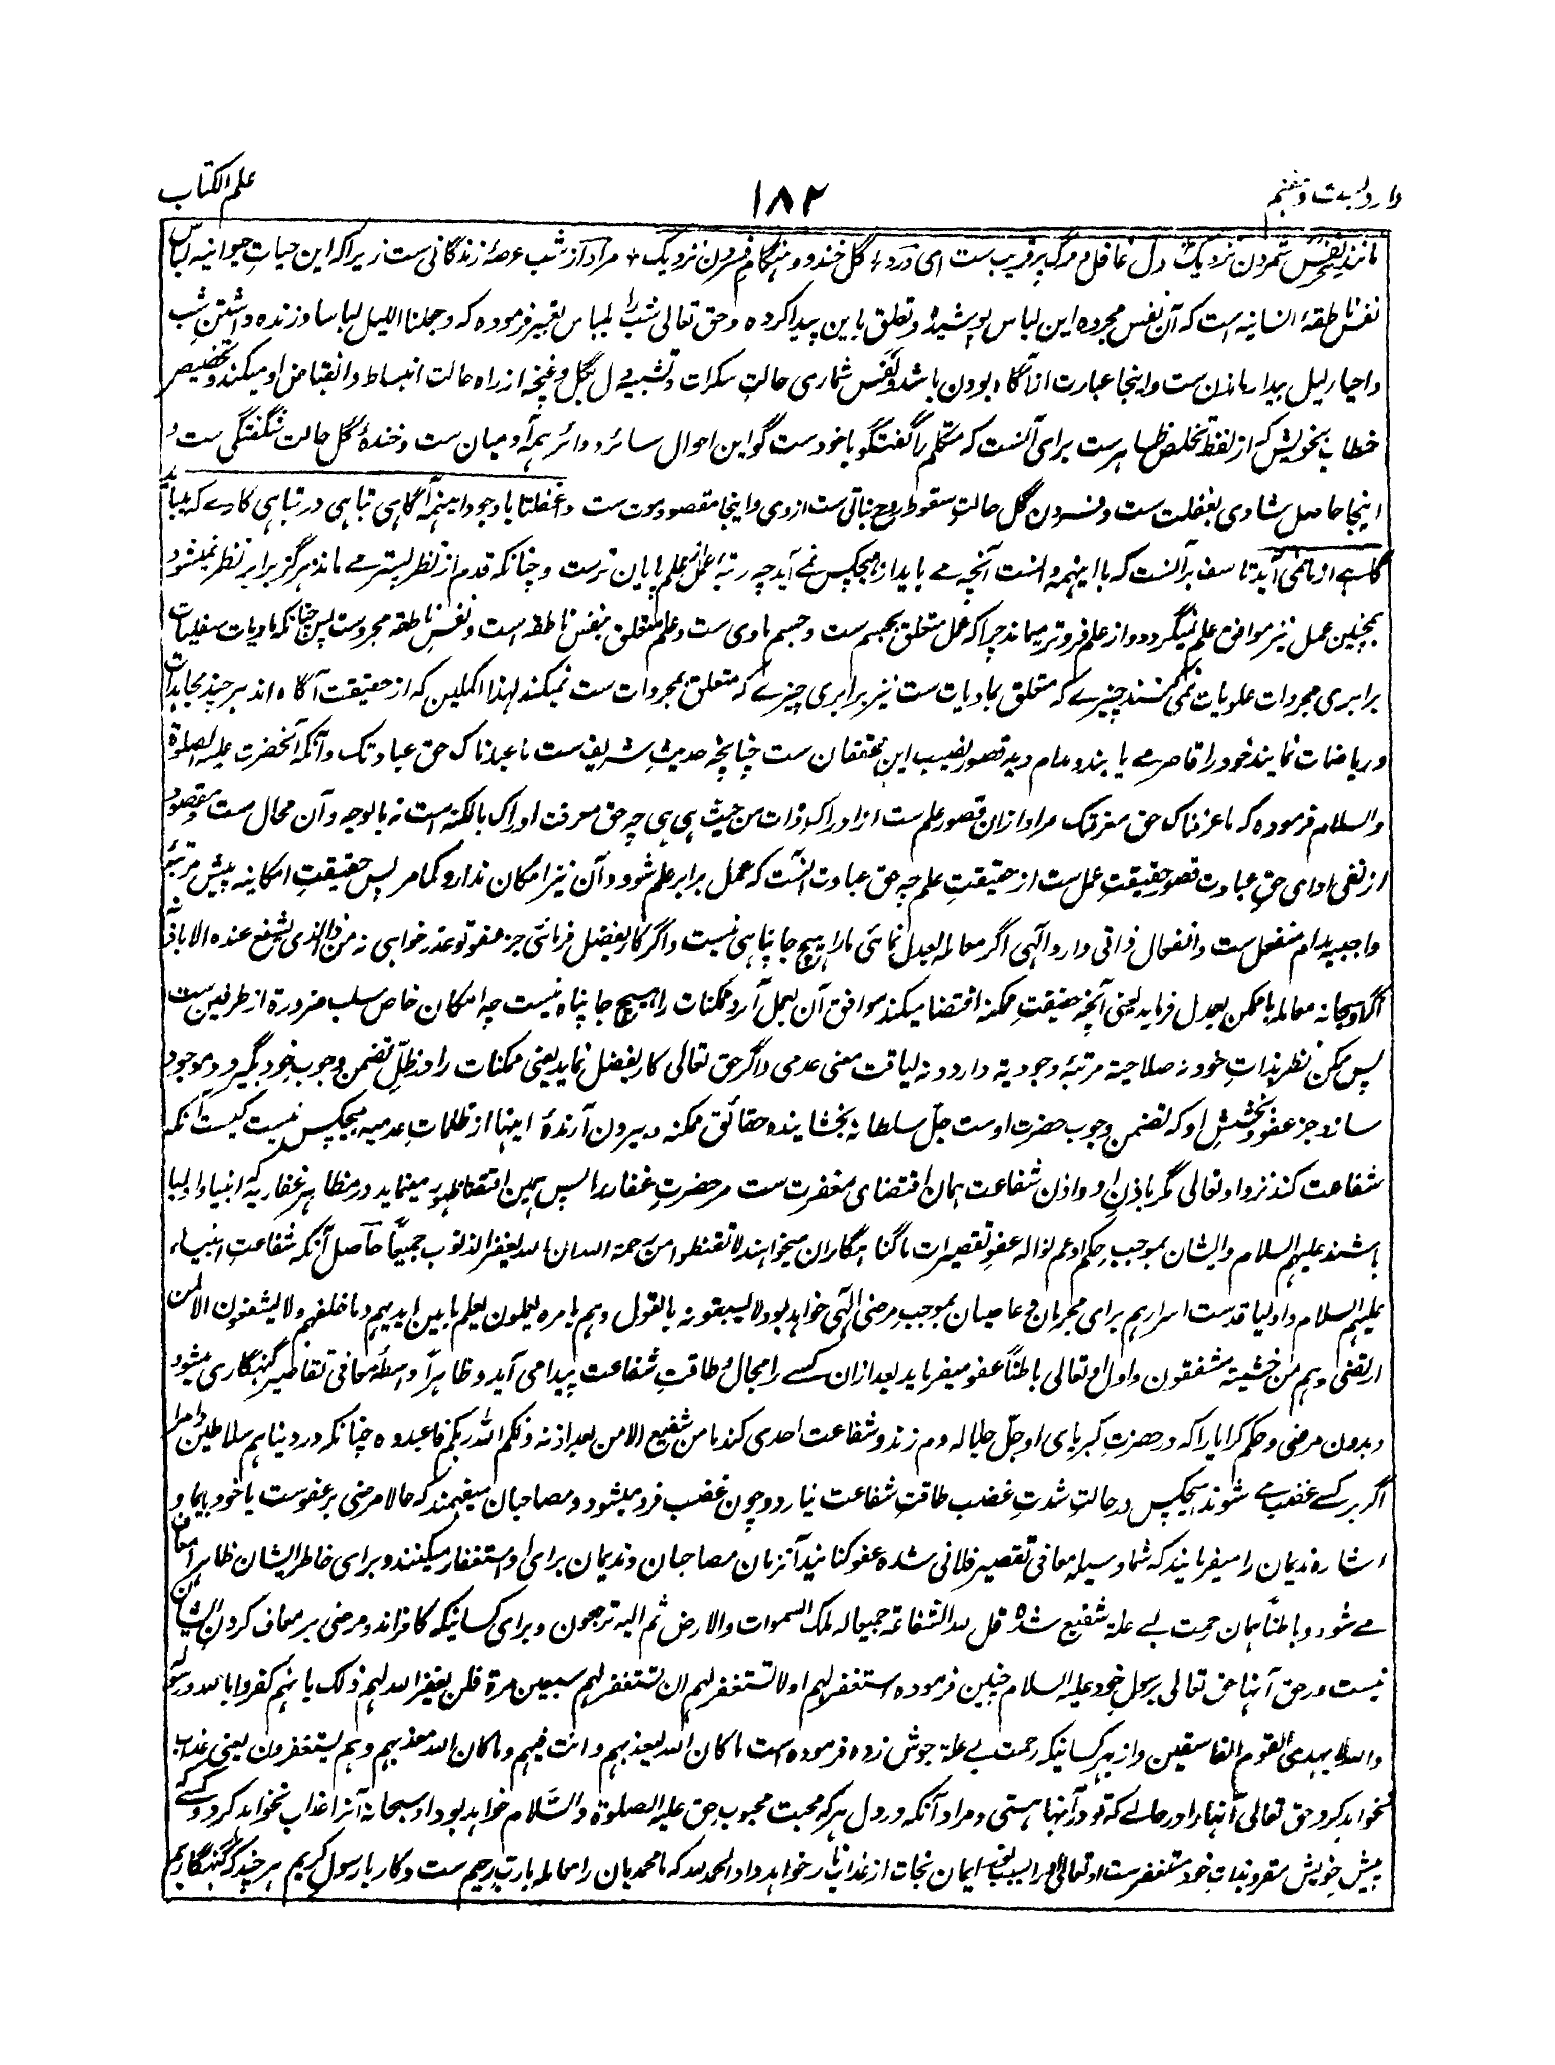 وارد بست و هفتم
۱۸۲
علم الکتاب
مانند نفس شمردن نزدیک دل غافل و مرگ پر فریب ست ای درد؛ گل خند و هنگام فسردن نزدیک + مراد از شب عرصهٔ زندگانی ست زیرا که این حیاتِ حیوانیه لباس
نفس ناطقهٔ انسانیه است که آن نفس مجرده این لباس پوشیده و تعلق باین پیدا کرده و حق تعالی شب را بلباس تعبیر فرموده که وجعلنا اللیل لباسا و زنده داشتنِ شب
و احیاء لیل بیدار ماندن ست و اینجا عبارت از آگاه بودن باشد و نفس شماری حالتِ سکرات و تشبیه دل بگل و غنچه از راه حالت انبساط و انقباض او میکند و تخصیص
خطاب بخویش که از لفظ تخلص ظاهر ست برای آنست که متکلم را گفتگو با خود ست گو این احوال سائر و دائر همه آدمیان ست و خندهٔ گل حالت شگفتگی ست و
اینجا حاصل شادی بغفلت ست و فسردن گل حالتِ سقوط روح نباتی ست از وی و اینجا مقصود موت ست و اغفلتا با وجود اینهمه آگاهی تباهی در تباهی کارے که بباید
گاہے از ما نمی آید تاسف بر آنست که با اینهمه دانست آنچه مے باید از هیچکس نمے آید چه رتبهٔ عمل از علم پایان ترست و چنانکه قدم از نظر پستر مے ماند هرگز برابر نظر نمیشود
همچنین عمل نیز موافق علم نمیگردد و از علم فروتر میماند چرا که عمل متعلق بجسم ست و جسم مادی ست و علم متعلق بنفس ناطقه است و نفس ناطقه مجردست پس چنانکه مادیات سفلیات
برابری مجردات علویات نمی کنند چیزے که متعلق بمادیات ست نیز برابری چیزے که متعلق بمجردات ست نمیکند لهذا اکملین که از حقیقت آگاه اند هر چند مجاهدات
و ریاضات نمایند خود را قاصر مے یابند و مدام دید قصور نصیب این محققان ست چنانچه حدیثِ شریف ست ما عبدناک حق عبادتک و آنکه آنحضرت علیه الصلوة
والسلام فرموده که ما عرفناک حق معرفتک مراد ازان قصور علم ست از ادراک ذات من حیث هی هی چه حق معرفت ادراک بالکنه است نه بالوجه و آن محال ست و مقصود
از نفی ادای حقِ عبادت قصور حقیقتِ عمل ست از حقیقتِ علم چه حق عبادت آنست که عمل برابر علم شود و آن نیز امکان ندارد کما مر پس حقیقتِ امکانیه پیش مرتبهٔ
واجبیه مدام منفعل ست و انفعال ذاتی دارد الٰهی اگر معامله بعدل نمائی ما را هیچ جا پناهی نیست و اگر کار بفضل فرمائی جز عفو تو عذر خواهی نه من ذا الذی یشفع عنده الا باذنه
اگر او سبحانه معامله با ممکن بعدل فرماید یعنی آنچه حقیقتِ ممکنه اقتضا میکند موافق آن بعمل آرد ممکنات را هیچ جا پناه نیست چه امکان خاص سلب ضرورة از طرفین ست
پس ممکن نظر بذاتِ خود نه صلاحیتِ مرتبهٔ وجودیه دارد و نه لیاقت معنی عدمی و اگر حق تعالی کار بفضل نماید یعنی ممکنات را در ظلِّ تضمن وجوب خود بگیرد و موجود
سازد جز عفو و بخششِ او که تضمن وجوب حضرت اوست جلّ سلطانه بخشاینده حقائق ممکنه و بیرون آرندهٔ اینها از ظلماتِ عدمیه هیچکس نیست کیست آنکه
شفاعت کند نزد او تعالی مگر باذنِ او و اذن شفاعت همان اقتضای مغفرت ست مر حضرتِ غفار را پس همین اقتضا ظهور مینماید در مظاهر غفاریه که انبیاء و اولیا
باشند علیهم السلام و ایشان بموجب حکم او عم نواله عفو تقصیرات ما گناهگاران میخواهند لا تقنطوا من رحمة الله ان الله یغفر الذنوب جمیعًا حاصل آنکه شفاعتِ انبیاء
علیهم السلام و اولیا قدست اسرارهم برای مجرمان و عاصیان بموجبِ مرضی الٰهی خواهد بود لا یسبقونه بالقول وهم بامره یعملون یعلم ما بین ایدیهم وما خلفهم ولا یشفعون الا لمن
ارتضی وهم من خشیته مشفقون و اول او تعالی باطنًا عفو میفرماید بعد ازان کسے را مجال و طاقتِ شفاعت پیدا می آید و ظاهراً واسطهٔ معافی تقاصیر گنهگاری میشود
و بدون مرضی و حکم کرا یارا که در حضرتِ کبریای او جلّ جلاله دم زند و شفاعت احدی کند ما من شفیع الا من بعد اذنه ذلکم الله ربکم فاعبدوه چنانکه در دنیا هم سلاطین و امرا
اگر بر کسے غضب مے شوند هیچکس در حالتِ شدتِ غضب طاقتِ شفاعت نیارد و چون غضب فرو میشود و مصاحبان میفهمند که حالا مرضی بر عفوست یا خود بایما و
اشاره ندیمان را میفرمایند که شما وسیله معافی تقصیر فلانی شده عفو کنانید آنزمان مصاحبان و ندیمان برای او استغفار میکنند و برای خاطر ایشان ظاهراً معاف
مے شود و باطنًا همان رحمت بے علة شفیع شده قل لله الشفاعة جمیعا له ملک السموات والارض ثم الیه ترجعون و برای کسانیکه کافراند و مرضی بر معاف کردن ایشان
نیست در حق آنها حق تعالی برسول خود علیه السلام چنین فرموده استغفر لهم او لا تستغفر لهم ان تستغفر لهم سبعین مرة فلن یغفر الله لهم ذلک بانهم کفروا بالله ورسوله
والله لا یهدی القوم الفاسقین و از بهر کسانیکه رحمت بے علة جوش زده فرموده است ما کان الله لیعذبهم وانت فیهم وما کان الله معذبهم وهم یستغفرون یعنی عذاب
نخواهد کرد حق تعالی آنها را در حالے که تو در آنها هستی و مراد آنکه در دل هر که محبت محبوب حق علیه الصلوة والسّلام خواهد بود او سبحانه آنرا عذاب نخواهد کرد و کسے که
پیش خویش مقر و بذاتِ خود مستغفرست او تعالی او را بسبب ایمان نجات از عذاب نار خواهد داد الحمد لله که ما محمدیان را معامله با ربِّ رحیم ست و کار با رسول کریم هر چند که گنهگاریم